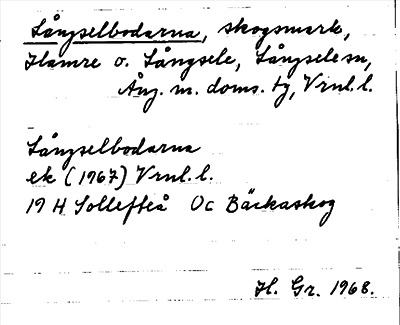 Långselbodarna, skogsmark,
Hamre o. Långsele, Långsele sn,
Ång. m. doms. tg, Vrnl. l.
Långselbodarna
ek (1967) Vrnl. l.
19 H Sollefteå Oc Bäckaskog
H. Gr. 1968.